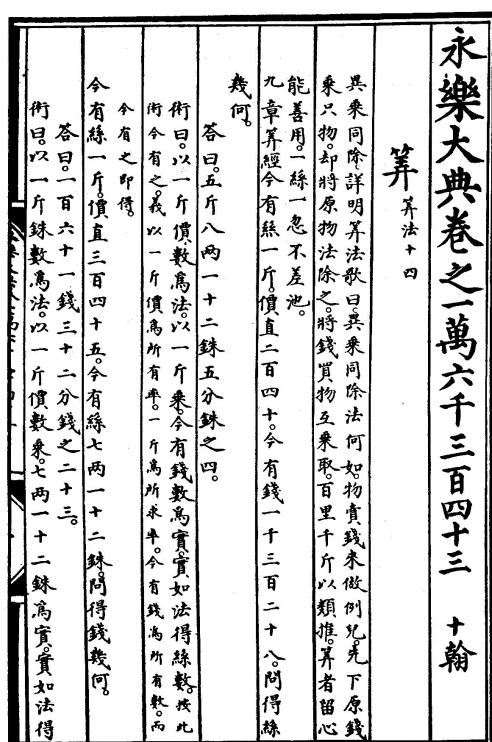 永樂大典卷之一萬六千三百四十三 十翰
筭 筭法十四
異乘同除詳明筭法歌曰。異乘同除法何如。物賣錢來做例兒。先下原錢
乘只物。却將原物法除之。將錢買物互乘取。百里千斤以類推。筭者留心
能善用。一絲一忽不差池。
九章筭經今有絲一斤。價直二百四十。今有錢一千三百二十八。問得絲
幾何。
答曰。五斤八两一十二銖五分銖之四。
術曰。以一斤價數爲法。以一斤乘今有錢數爲實。實如法得絲數。按此
術今有之義以一斤價爲所有率。一斤爲所求率。今有錢爲所有數。而
今有之即得。
今有絲一斤。價直三百四十五。今有絲七两一十二銖。問得錢幾何。
答曰。一百六十一錢三十二分錢之二十三。
術曰。以一斤銖數爲法。以一斤價數乘。七两一十二銖爲實。實如法得